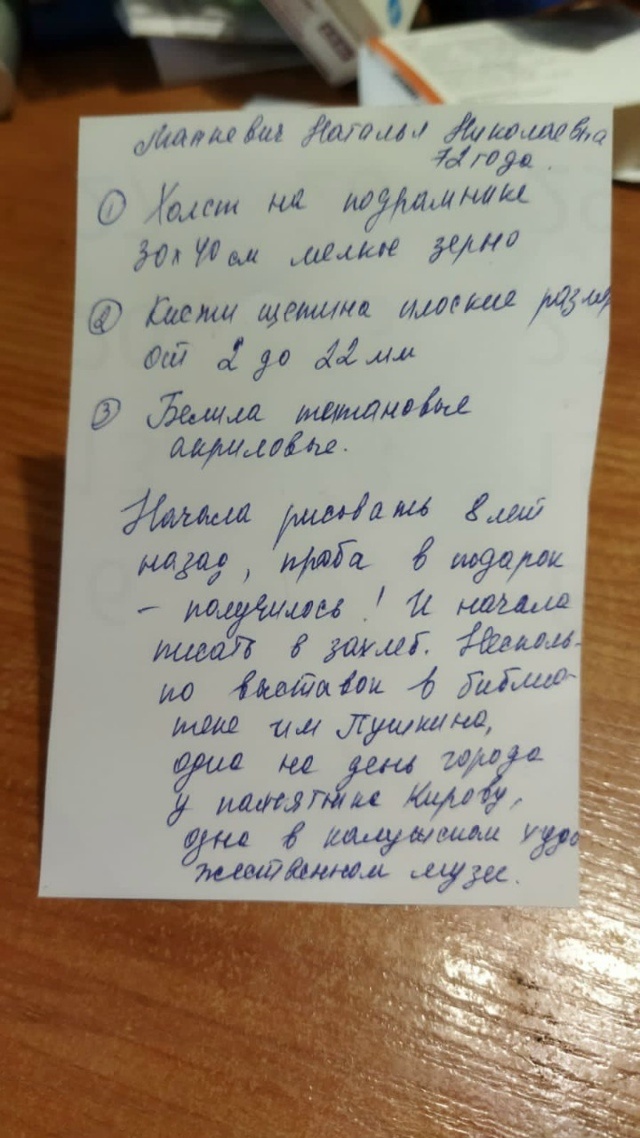 Маткевич Наталья Николаевна
72 года.
① Холст на подрамнике
30х40 см мелкое зерно
② Кисти щетина плоские размер
от 2 до 22 мм
③ Белила титановые
акриловые.
Начала рисовать 8 лет
назад, проба в подарок
- получилось! И начала
писать в захлеб. Несколь-
ко выставок в библио-
теке им Пушкина,
одна на день города
у памятника Кирову,
одна в калужском худо
жественном музее.